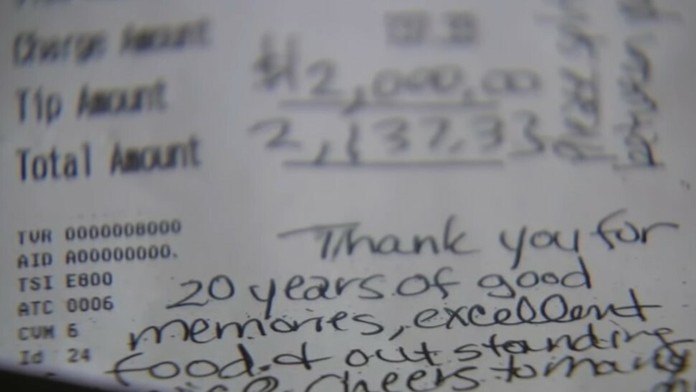 Charge Amount
Tip Amount $2,000.00
Total Amount 2,137.33
TVR 0000008000
AID A00000000.
TSI E800
ATC 0006
CVM 6
Id 24
Thank you for
20 years of good
memories, excellent
food & outstanding
Cheers to